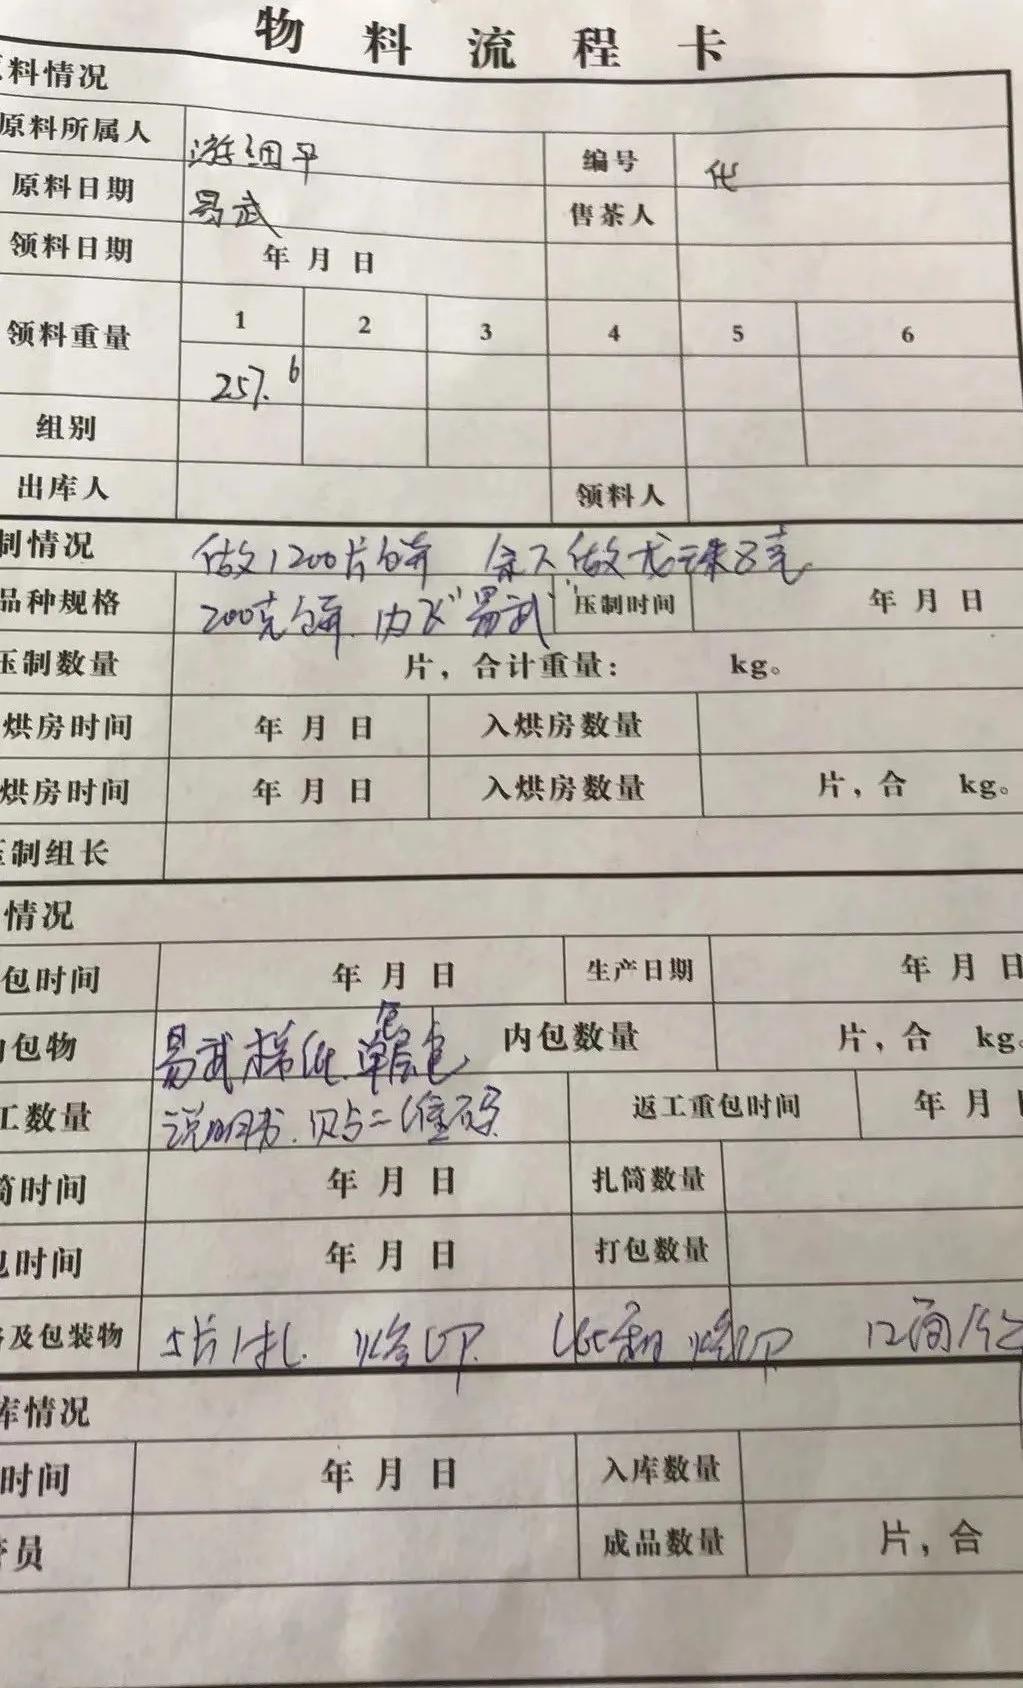 物料流程卡
料情况
原料所属人 游细平 编号
原料日期 易武 售茶人
领料日期 年 月 日
领料重量 1 2 3 4 5 6
257.6
组别
出库人 领料人
制情况 做1200片饼 余下做龙珠8克
品种规格 200克饼.内飞"易武" 压制时间 年 月 日
压制数量 片，合计重量： kg。
烘房时间 年 月 日 入烘房数量
烘房时间 年 月 日 入烘房数量 片，合 kg。
压制组长
情况
包时间 年 月 日 生产日期 年 月 日
内包物 易武棉纸.单层包 内包数量 片，合 kg。
工数量 说明书.贴二维码 返工重包时间 年 月
筒时间 年 月 日 扎筒数量
包时间 年 月 日 打包数量
及包装物 5片1扎. 烙印. 烙印
库情况
时间 年 月 日 入库数量
员 成品数量 片，合